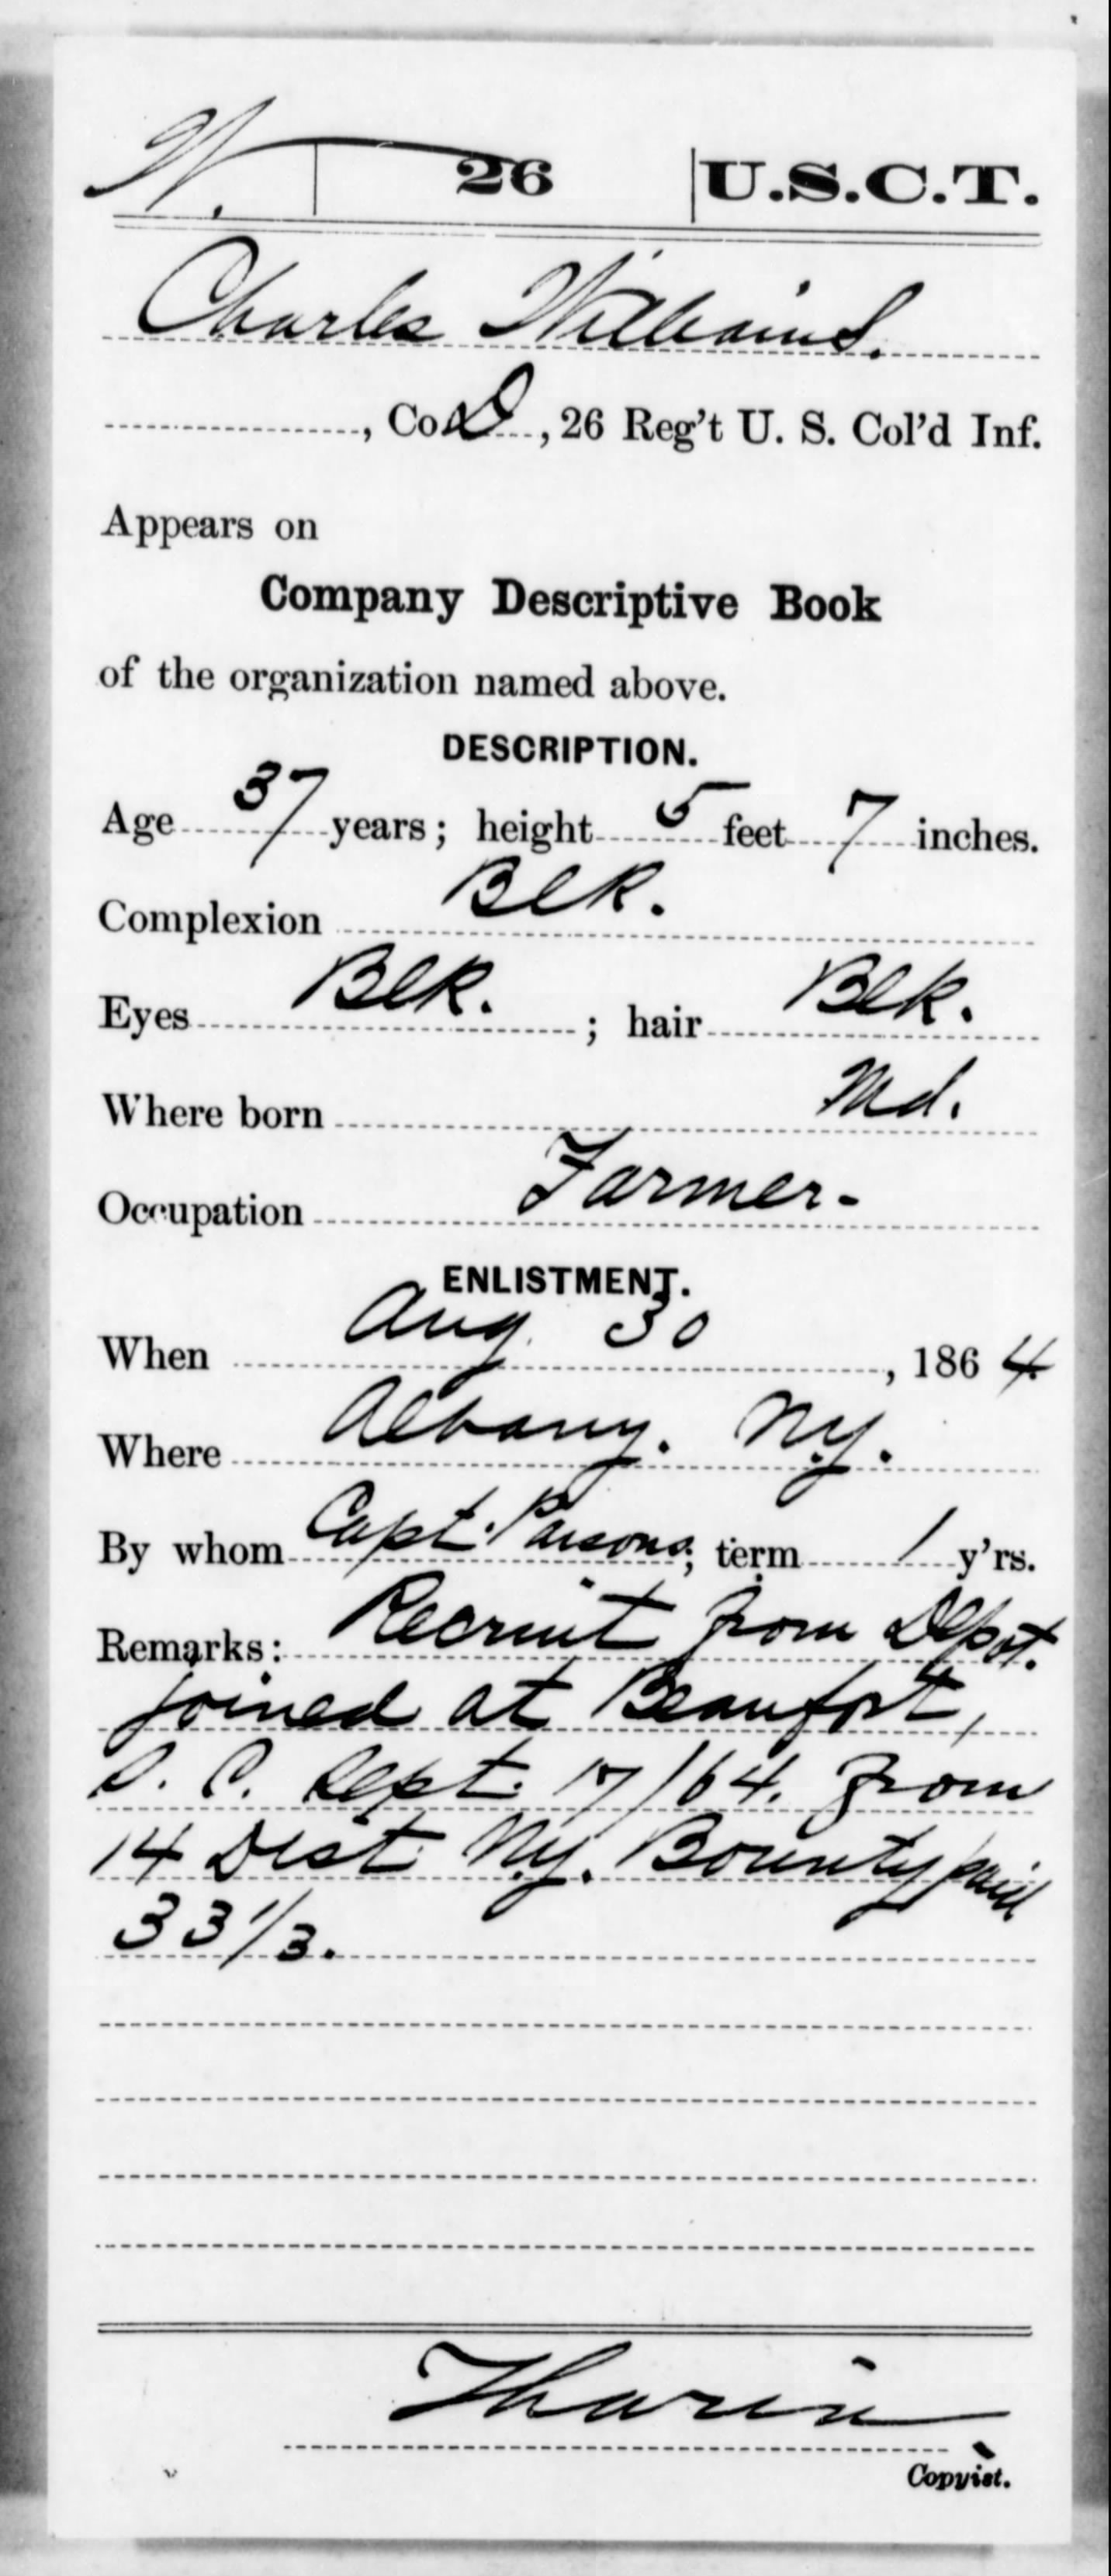 W. | 26 | U.S.C.T.
Charles Williams.
, Co. D, 26 Reg't U. S. Col'd Inf.
Appears on
Company Descriptive Book
of the organization named above.
DESCRIPTION.
Age 37 years; height 5 feet 7 inches.
Complexion Blk.
Eyes Blk. ; hair Blk.
Where born Md.
Occupation Farmer.
ENLISTMENT.
When Aug. 30, 1864
Where Albany. N.y.
By whom Capt. Parsons; term 1 y'rs.
Remarks: Recruit from Depot.
joined at Beaufort,
S. C. Sept. 17/64. from
14 Dist N.y. Bounty paid
33 1/3.
Tharin
Copyist.